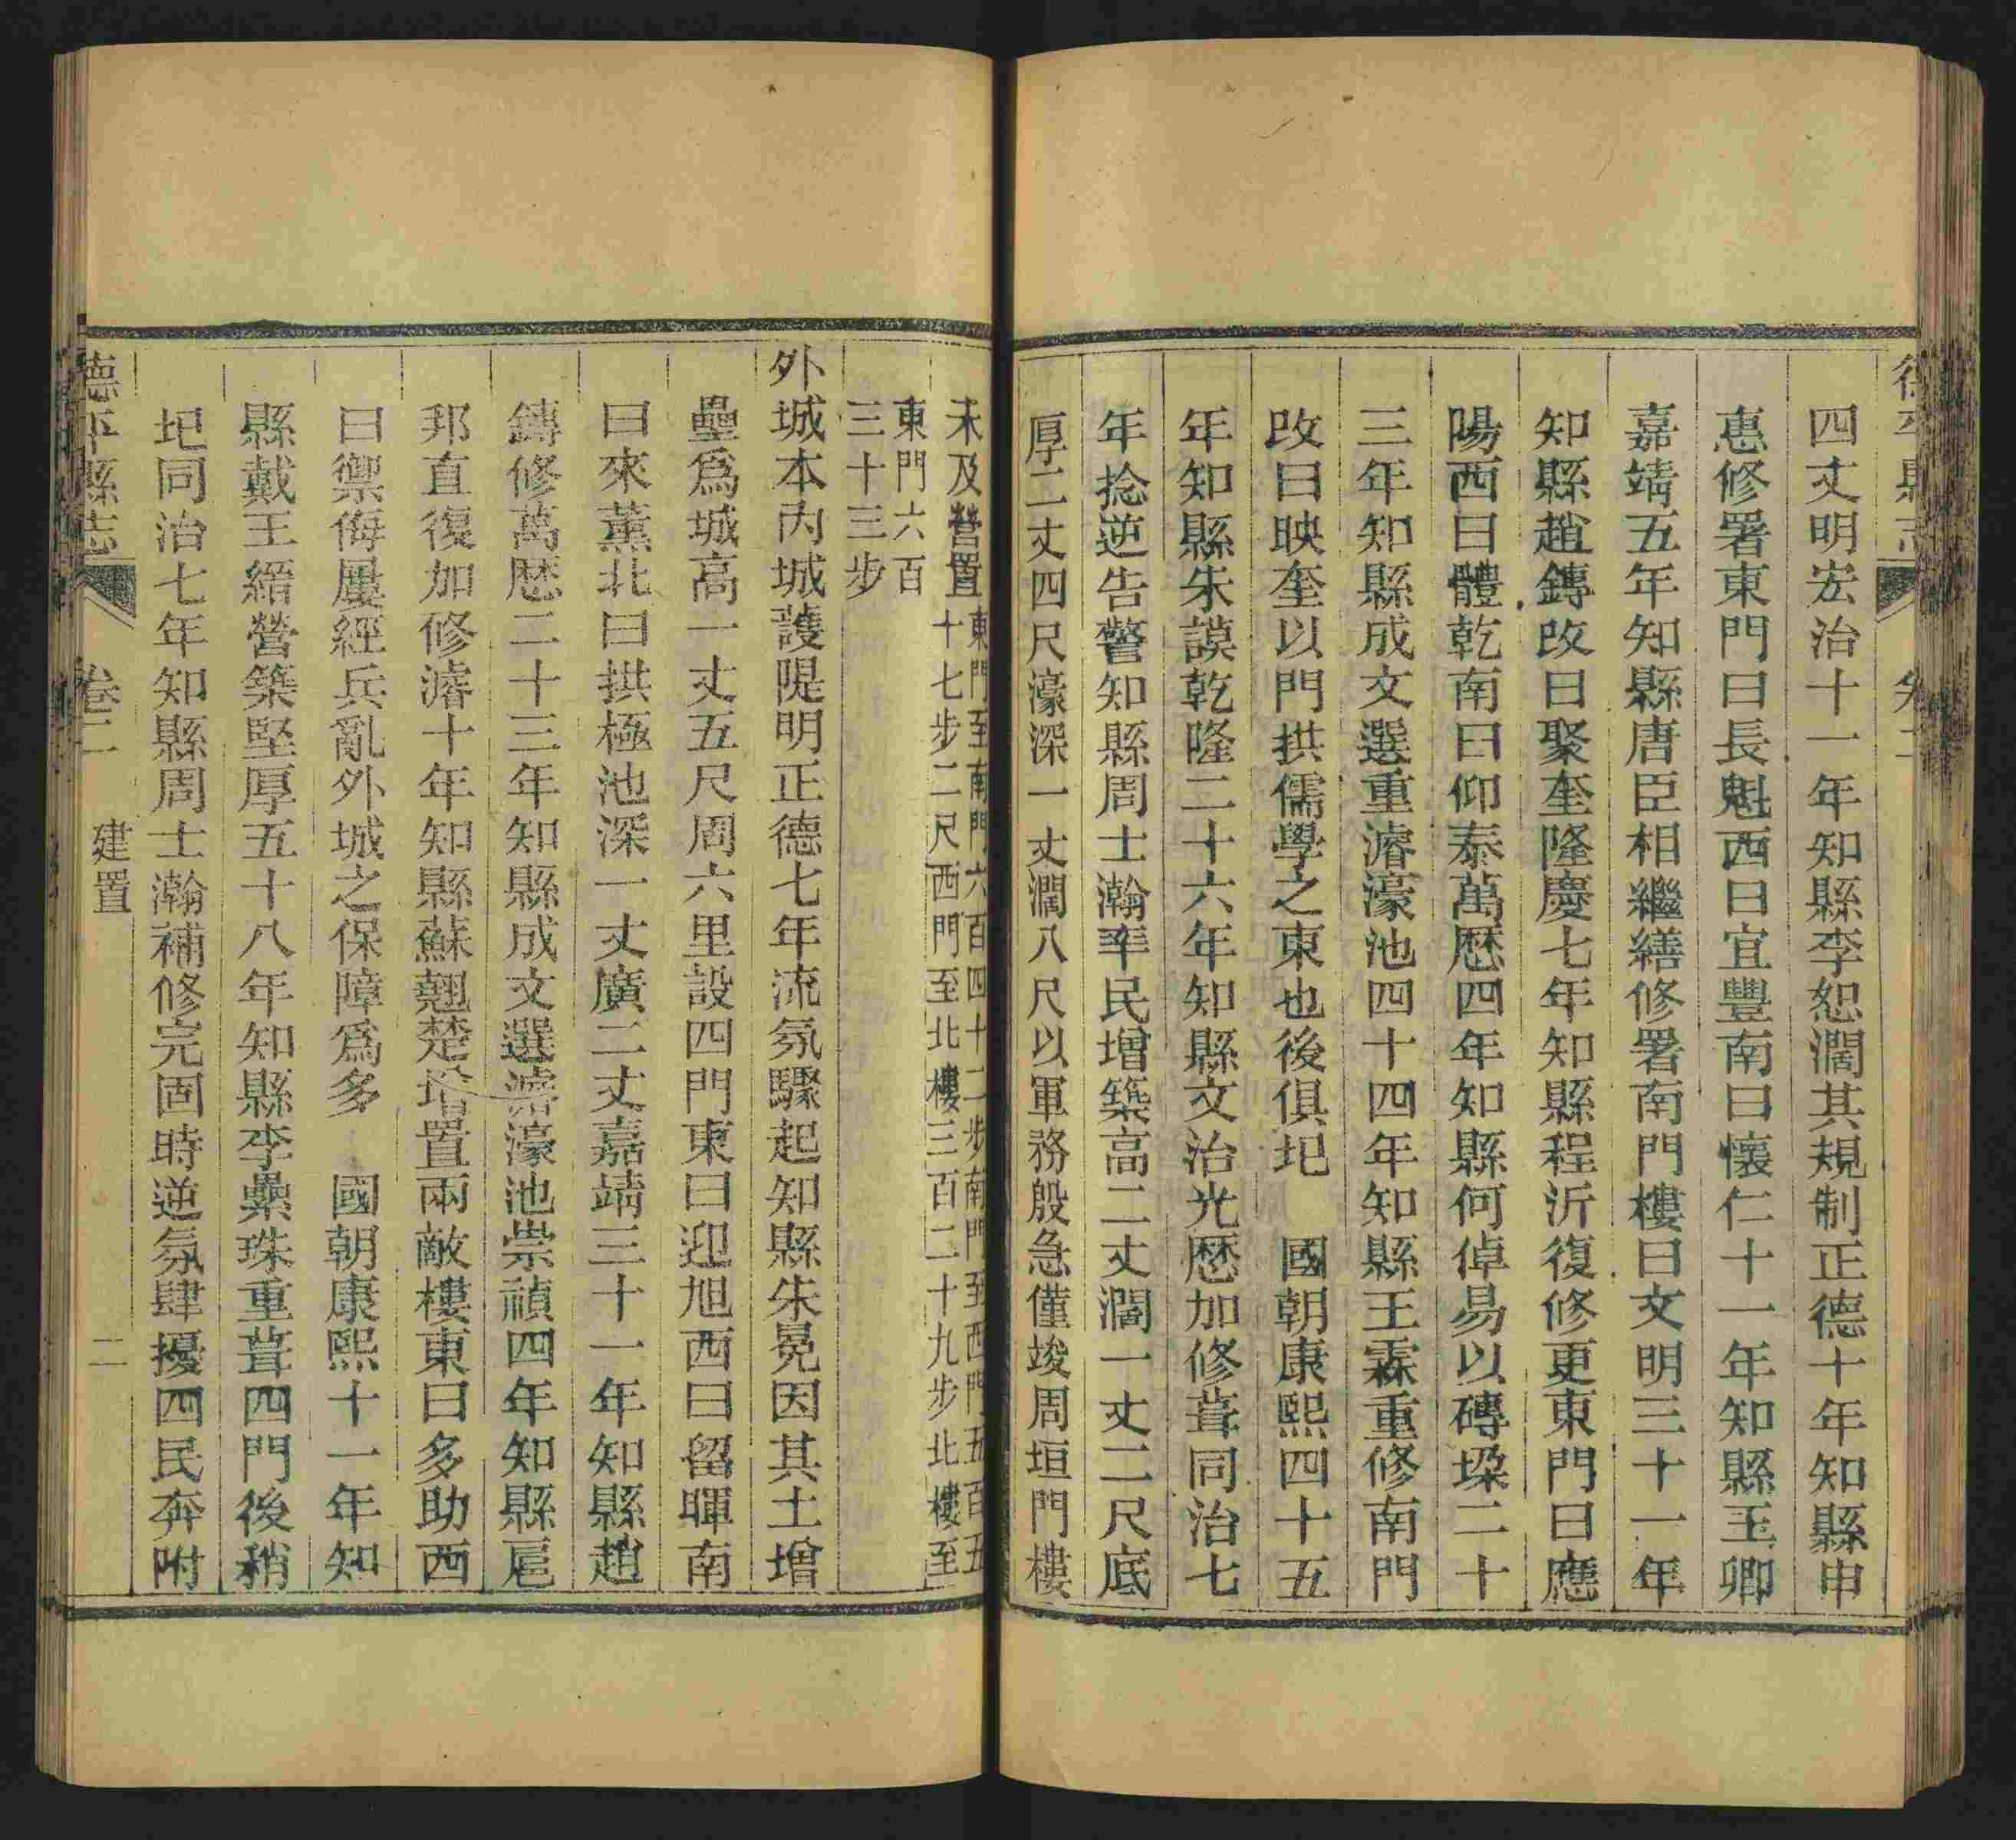 德平縣志
卷二
四丈明宏治十一年知縣李恕濶其規制正德十年知縣申
惠修署東門曰長魁西曰宜豐南曰懷仁十一年知縣王卿
嘉靖五年知縣唐臣相繼繕修署南門樓曰文明三十一年
知縣趙鏄改曰聚奎隆慶七年知縣程沂復修更東門曰應
陽西曰體乾南曰仰泰萬歷四年知縣何倬易以磚垜二十
三年知縣成文選重濬濠池四十四年知縣王霖重修南門
改曰映奎以門拱儒學之東也後俱圮 國朝康熙四十五
年知縣朱謨乾隆二十六年知縣文治光歷加修葺同治七
年捻逆告警知縣周士瀚率民增築高二丈濶一丈二尺底
厚二丈四尺濠深一丈濶八尺以軍務殷急僅竣周垣門樓
未及營置東門至南門六百四十二步南門至西門五百五
十七步二尺西門至北樓三百二十九步北樓至
東門六百
三十三步
外城本內城護隄明正德七年流氛驟起知縣朱冕因其土增
壘爲城高一丈五尺周六里設四門東曰迎旭西曰留暉南
曰來薰北曰拱極池深一丈廣二丈嘉靖三十一年知縣趙
鏄修萬歷二十三年知縣成文選濬濠池崇禎四年知縣扈
邦直復加修濬十年知縣蘇翹楚增置兩敵樓東曰多助西
曰禦侮屢經兵亂外城之保障爲多 國朝康熙十一年知
縣戴王縉營築堅厚五十八年知縣李纍珠重葺四門後稍
圮同治七年知縣周士瀚補修完固時逆氛肆擾四民奔附
德平縣志
卷二
建置
二